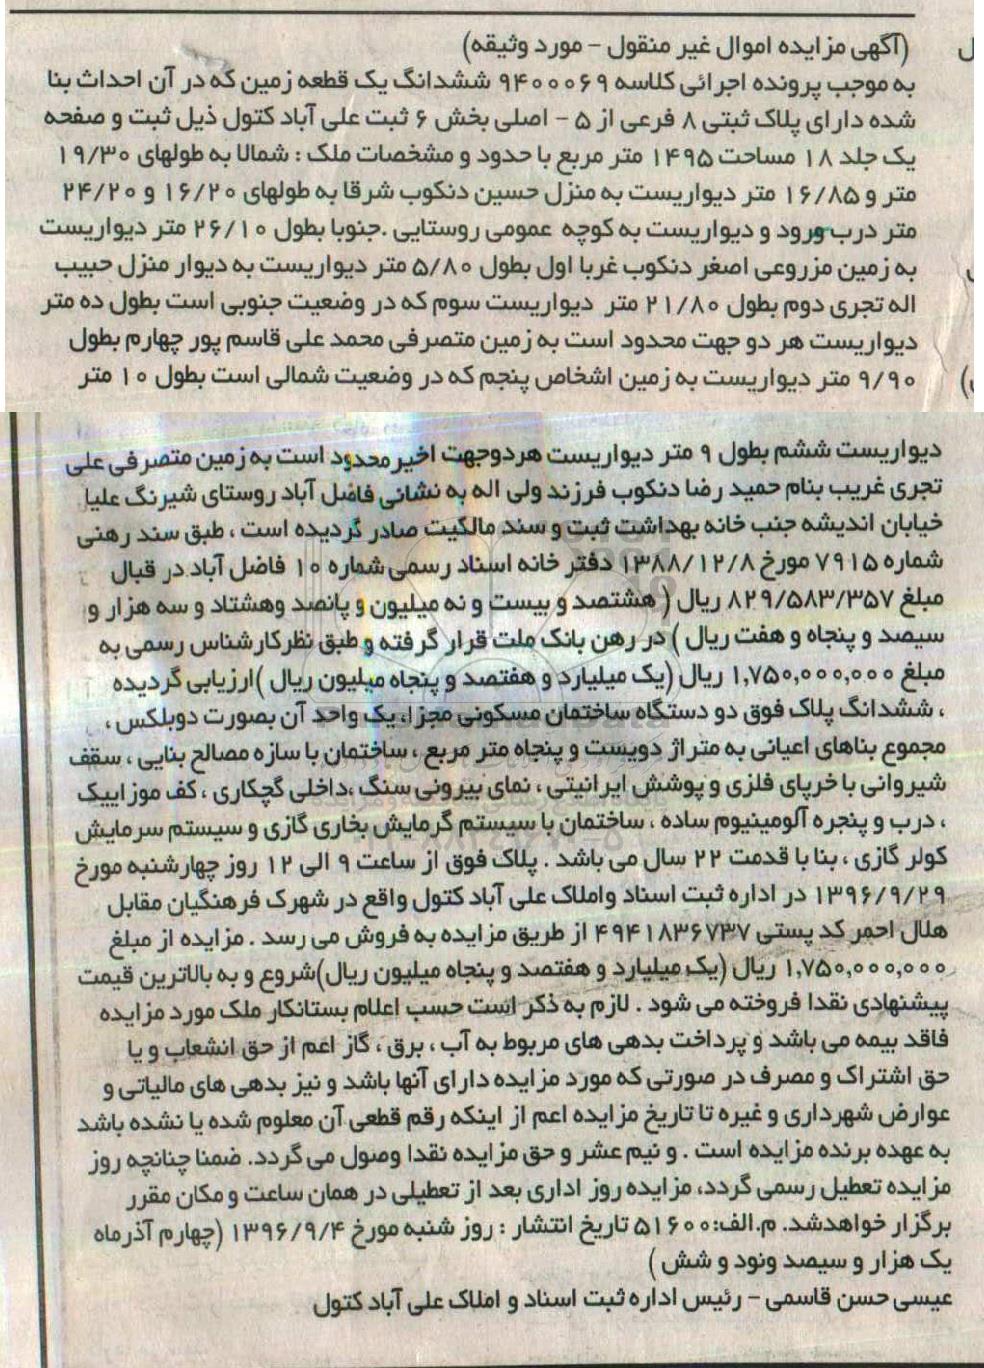 (آگهی مزایده اموال غیر منقول – مورد وثیقه)
به موجب پرونده اجرائی کلاسه ۹۴۰۰۰۶۹ ششدانگ یک قطعه زمین که در آن احداث بنا
شده دارای پلاک ثبتی ۸ فرعی از ۵ – اصلی بخش ۶ ثبت علی آباد کتول ذیل ثبت و صفحه
یک جلد ۱۸ مساحت ۱۴۹۵ متر مربع با حدود و مشخصات ملک : شمالا به طولهای ۱۹/۳۰
متر و ۱۶/۸۵ متر دیواریست به منزل حسین دنکوب شرقا به طولهای ۱۶/۲۰ و ۲۴/۲۰
متر درب ورود و دیواریست به کوچه عمومی روستایی .جنوبا بطول ۲۶/۱۰ متر دیواریست
به زمین مزروعی اصغر دنکوب غربا اول بطول ۵/۸۰ متر دیواریست به دیوار منزل حبیب
اله تجری دوم بطول ۲۱/۸۰ متر دیواریست سوم که در وضعیت جنوبی است بطول ده متر
دیواریست هر دو جهت محدود است به زمین متصرفی محمد علی قاسم پور چهارم بطول
۹/۹۰ متر دیواریست به زمین اشخاص پنجم که در وضعیت شمالی است بطول ۱۰ متر
دیواریست ششم بطول ۹ متر دیواریست هردوجهت اخیر محدود است به زمین متصرفی علی
تجری غریب بنام حمید رضا دنکوب فرزند ولی اله به نشانی فاضل آباد روستای شیرنگ علیا
خیابان اندیشه جنب خانه بهداشت ثبت و سند مالکیت صادر گردیده است ، طبق سند رهنی
شماره ۷۹۱۵ مورخ ۱۳۸۸/۱۲/۸ دفتر خانه اسناد رسمی شماره ۱۰ فاضل آباد در قبال
مبلغ ۸۲۹/۵۸۳/۳۵۷ ریال ( هشتصد و بیست و نه میلیون و پانصد وهشتاد و سه هزار و
سیصد و پنجاه و هفت ریال ) در رهن بانک ملت قرار گرفته و طبق نظرکارشناس رسمی به
مبلغ ۱,۷۵۰,۰۰۰,۰۰۰ ریال (یک میلیارد و هفتصد و پنجاه میلیون ریال )ارزیابی گردیده
، ششدانگ پلاک فوق دو دستگاه ساختمان مسکونی مجزا، یک واحد آن بصورت دوبلکس ،
مجموع بناهای اعیانی به متراژ دویست و پنجاه متر مربع ، ساختمان با سازه مصالح بنایی ، سقف
شیروانی با خرپای فلزی و پوشش ایرانیتی ، نمای بیرونی سنگ ،داخلی گچکاری ، کف موزاییک
، درب و پنجره آلومینیوم ساده ، ساختمان با سیستم گرمایش بخاری گازی و سیستم سرمایش
کولر گازی ، بنا با قدمت ۲۲ سال می باشد . پلاک فوق از ساعت ۹ الی ۱۲ روز چهارشنبه مورخ
۱۳۹۶/۹/۲۹ در اداره ثبت اسناد واملاک علی آباد کتول واقع در شهرک فرهنگیان مقابل
هلال احمر کد پستی ۴۹۴۱۸۳۶۷۳۷ از طریق مزایده به فروش می رسد . مزایده از مبلغ
۱,۷۵۰,۰۰۰,۰۰۰ ریال (یک میلیارد و هفتصد و پنجاه میلیون ریال)شروع و به بالاترین قیمت
پیشنهادی نقدا فروخته می شود . لازم به ذکر است حسب اعلام بستانکار ملک مورد مزایده
فاقد بیمه می باشد و پرداخت بدهی های مربوط به آب ، برق ، گاز اعم از حق انشعاب و یا
حق اشتراک و مصرف در صورتی که مورد مزایده دارای آنها باشد و نیز بدهی های مالیاتی و
عوارض شهرداری و غیره تا تاریخ مزایده اعم از اینکه رقم قطعی آن معلوم شده یا نشده باشد
به عهده برنده مزایده است . و نیم عشر و حق مزایده نقدا وصول می گردد. ضمنا چنانچه روز
مزایده تعطیل رسمی گردد، مزایده روز اداری بعد از تعطیلی در همان ساعت و مکان مقرر
برگزار خواهدشد. م.الف:۵۱۶۰۰ تاریخ انتشار : روز شنبه مورخ ۱۳۹۶/۹/۴ (چهارم آذرماه
یک هزار و سیصد ونود و شش )
عیسی حسن قاسمی – رئیس اداره ثبت اسناد و املاک علی آباد کتول